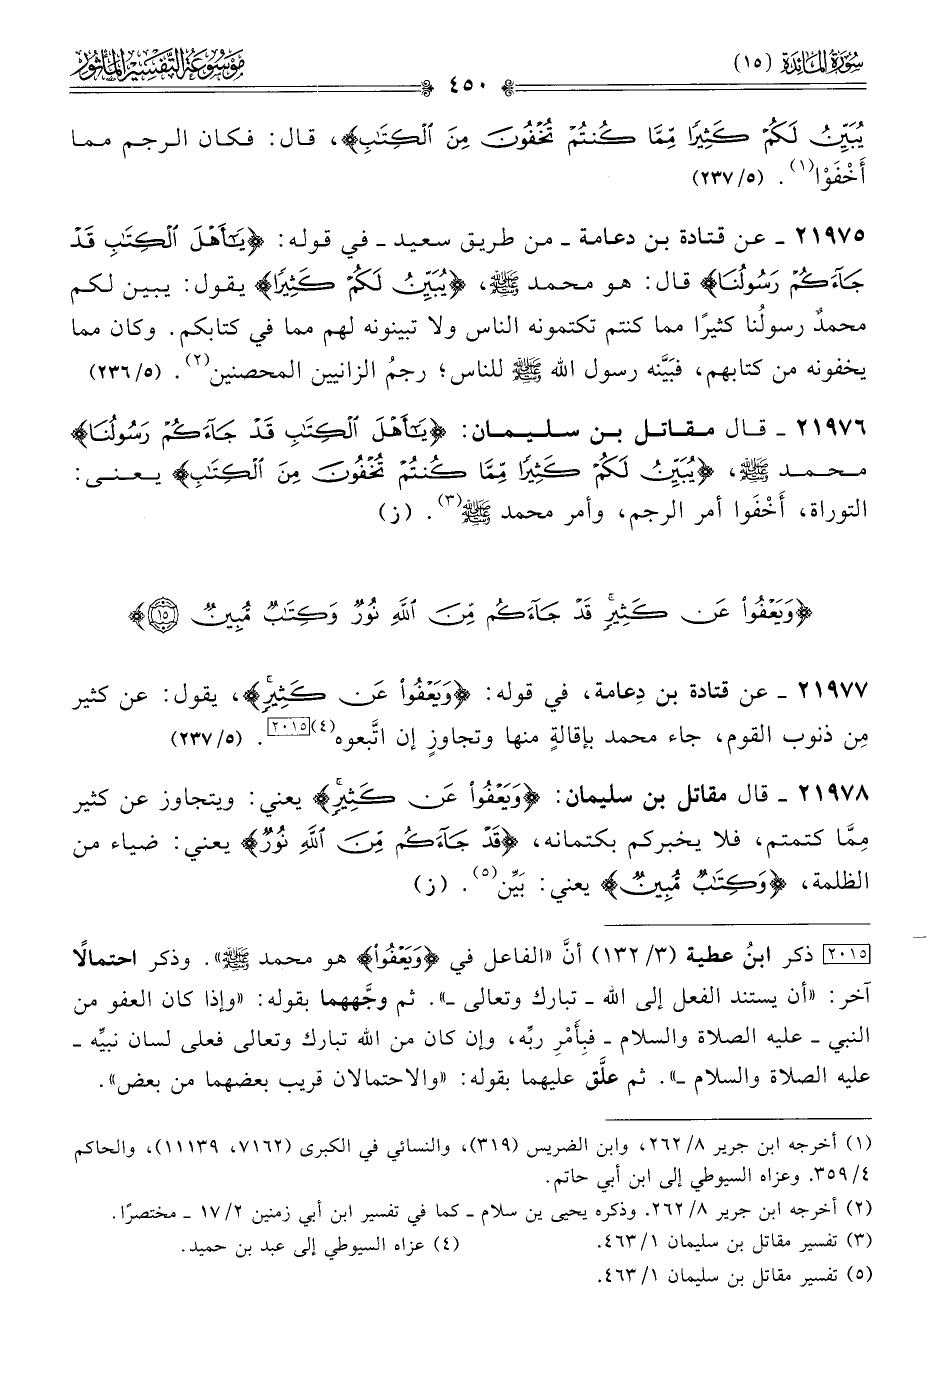 سُورَةُ المَائِدَة (١٥)
٤٥٠
مَوْسُوعَةُ التَّفْسِيْرِ المَأْثُور
يُبَيِّنُ لَكُمْ كَثِيرًا مِّمَّا كُنتُمْ تُخْفُونَ مِنَ ٱلْكِتَٰبِ﴾، قال: فكان الرجم مما
أَخْفَوْا(١). (٢٣٧/٥)
٢١٩٧٥ ـ عن قتادة بن دعامة ـ من طريق سعيد ـ في قوله: ﴿يَٰٓأَهْلَ ٱلْكِتَٰبِ قَدْ
جَآءَكُمْ رَسُولُنَا﴾ قال: هو محمد ﷺ، ﴿يُبَيِّنُ لَكُمْ كَثِيرًا﴾ يقول: يبين لكم
محمدٌ رسولُنا كثيرًا مما كنتم تكتمونه الناس ولا تبينونه لهم مما في كتابكم. وكان مما
يخفونه من كتابهم، فبَيَّنه رسول الله ﷺ للناس؛ رجمُ الزانيين المحصنين(٢). (٢٣٦/٥)
٢١٩٧٦ ـ قال مقاتل بن سليمان: ﴿يَٰٓأَهْلَ ٱلْكِتَٰبِ قَدْ جَآءَكُمْ رَسُولُنَا﴾
محمد ﷺ، ﴿يُبَيِّنُ لَكُمْ كَثِيرًا مِّمَّا كُنتُمْ تُخْفُونَ مِنَ ٱلْكِتَٰبِ﴾ يعني:
التوراة، أَخْفَوا أمر الرجم، وأمر محمد ﷺ(٣). (ز)
﴿وَيَعْفُوا۟ عَن كَثِيرٍۚ قَدْ جَآءَكُم مِّنَ ٱللَّهِ نُورٌ وَكِتَٰبٌ مُّبِينٌ ١٥﴾
٢١٩٧٧ ـ عن قتادة بن دِعامة، في قوله: ﴿وَيَعْفُوا۟ عَن كَثِيرٍۚ﴾، يقول: عن كثير
مِن ذنوب القوم، جاء محمد بإقالةٍ منها وتجاوزٍ إن اتَّبعوه(٤)[٢٠١٥]. (٢٣٧/٥)
٢١٩٧٨ ـ قال مقاتل بن سليمان: ﴿وَيَعْفُوا۟ عَن كَثِيرٍۚ﴾ يعني: ويتجاوز عن كثير
مِمَّا كتمتم، فلا يخبركم بكتمانه، ﴿قَدْ جَآءَكُم مِّنَ ٱللَّهِ نُورٌ﴾ يعني: ضياء من
الظلمة، ﴿وَكِتَٰبٌ مُّبِينٌ﴾ يعني: بَيِّن(٥). (ز)
[٢٠١٥] ذكر ابنُ عطية (٣/ ١٣٢) أنَّ «الفاعل في ﴿وَيَعْفُوا۟﴾ هو محمد ﷺ». وذكر احتمالًا
آخر: «أن يستند الفعل إلى الله ـ تبارك وتعالى ـ». ثم وجَّههما بقوله: «وإذا كان العفو من
النبي ـ عليه الصلاة والسلام ـ فبِأَمْرِ ربِّه، وإن كان من الله تبارك وتعالى فعلى لسان نبيِّه ـ
عليه الصلاة والسلام ـ». ثم علَّق عليهما بقوله: «والاحتمالان قريب بعضهما من بعض».
(١) أخرجه ابن جرير ٨/ ٢٦٢، وابن الضريس (٣١٩)، والنسائي في الكبرى (٧١٦٢، ١١١٣٩)، والحاكم
٤/ ٣٥٩. وعزاه السيوطي إلى ابن أبي حاتم.
(٢) أخرجه ابن جرير ٨/ ٢٦٢. وذكره يحيى بن سلام ـ كما في تفسير ابن أبي زمنين ٢/ ١٧ ـ مختصرًا.
(٣) تفسير مقاتل بن سليمان ١/ ٤٦٣. (٤) عزاه السيوطي إلى عبد بن حميد.
(٥) تفسير مقاتل بن سليمان ١/ ٤٦٣.